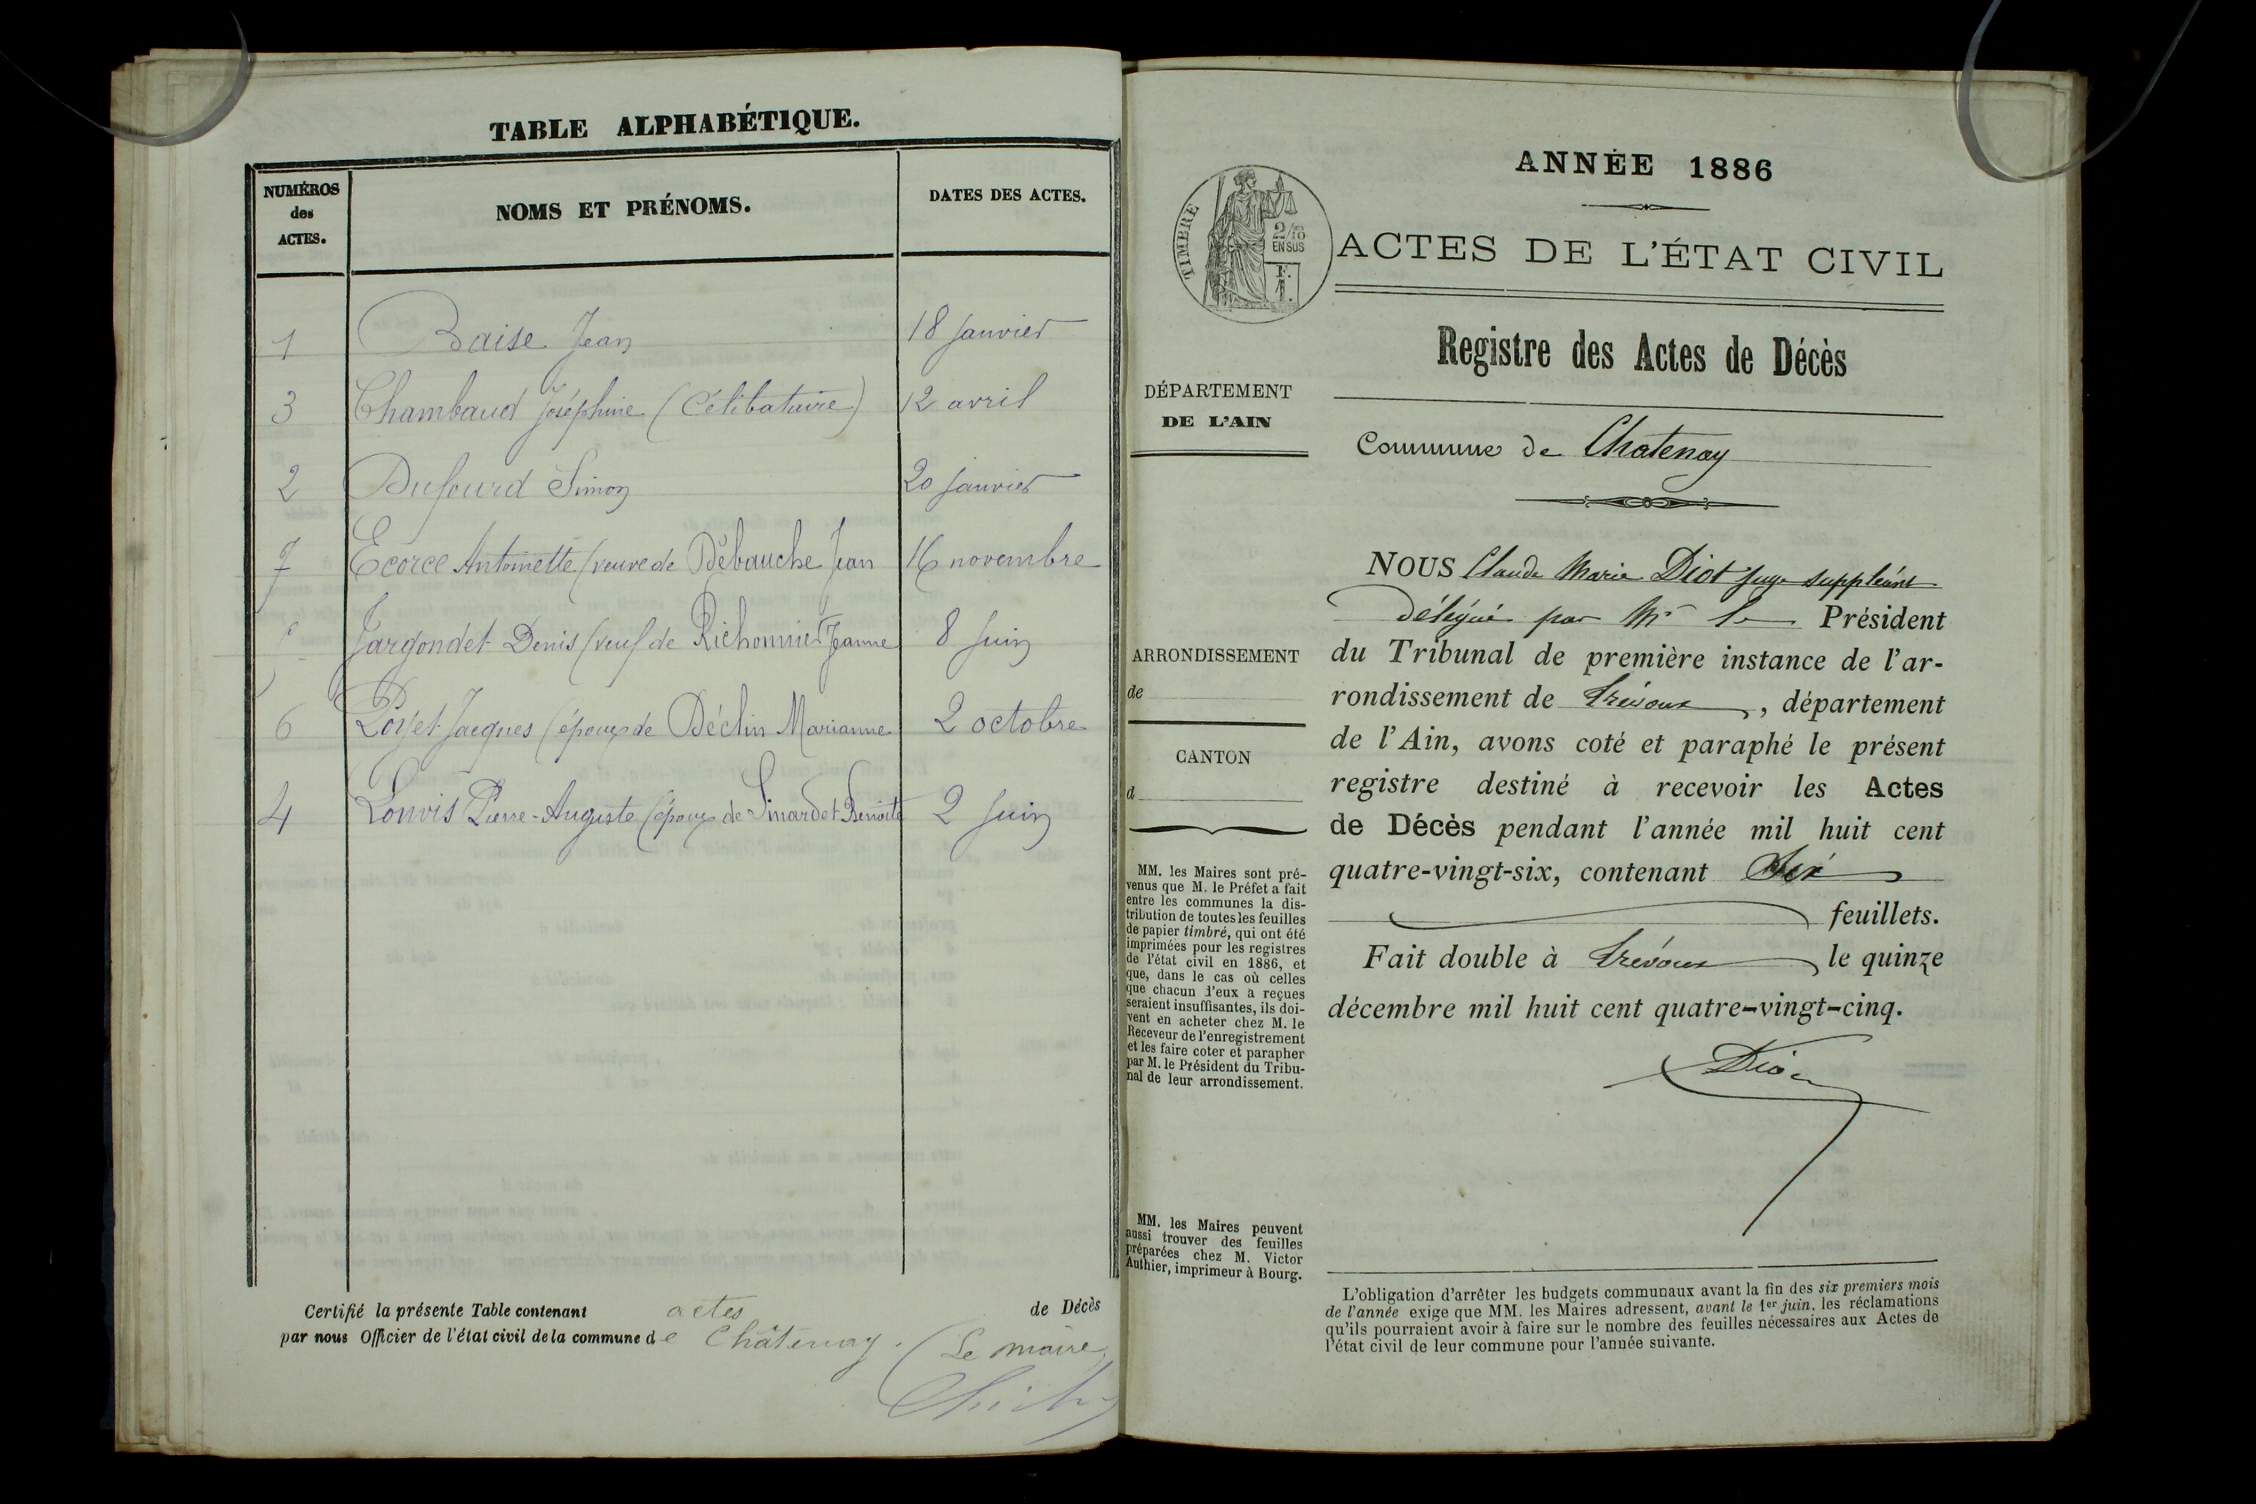 TABLE ALPHABÉTIQUE.
NUMÉROS des ACTES.
NOMS ET PRÉNOMS.
DATES DES ACTES.
1 Baise Jean 18 janvier
3 Chambaud Joséphine (Célibataire) 12 avril
2 Dufourd Simon 20 janvier
7 Ecorce Antoinette (veuve de Débauche Jean 16 novembre
Jargondet Denis (veuf de Richonnier Jeanne 8 juin
6 Loyet Jacques (époux de Déclin Marianne 2 octobre
4 Louvis Pierre-Auguste (époux de Sinardet Benoite 2 juin
Certifié la présente Table contenant actes de Décès
par nous Officier de l'état civil de la commune de Châtenay.
Le maire
ANNÉE 1886
TIMBRE
2/10
EN SUS
ACTES DE L'ÉTAT CIVIL
Registre des Actes de Décès
DÉPARTEMENT
DE L'AIN
Commune de Chatenay
ARRONDISSEMENT
de
CANTON
d
MM. les Maires sont pré-
venus que M. le Préfet a fait
entre les communes la dis-
tribution de toutes les feuilles
de papier timbré, qui ont été
imprimées pour les registres
de l'état civil en 1886, et
que, dans le cas où celles
que chacun d'eux a reçues
seraient insuffisantes, ils doi-
vent en acheter chez M. le
Receveur de l'enregistrement
et les faire coter et parapher
par M. le Président du Tribu-
nal de leur arrondissement.
MM. les Maires peuvent
aussi trouver des feuilles
préparées chez M. Victor
Authier, imprimeur à Bourg.
NOUS Claude Marie Diot juge suppléant
délégué par Mr le Président
du Tribunal de première instance de l'ar-
rondissement de Trévoux, département
de l'Ain, avons coté et paraphé le présent
registre destiné à recevoir les Actes
de Décès pendant l'année mil huit cent
quatre-vingt-six, contenant Six
feuillets.
Fait double à Trévoux le quinze
décembre mil huit cent quatre-vingt-cinq.
Diot
L'obligation d'arrêter les budgets communaux avant la fin des six premiers mois
de l'année exige que MM. les Maires adressent, avant le 1er juin, les réclamations
qu'ils pourraient avoir à faire sur le nombre des feuilles nécessaires aux Actes de
l'état civil de leur commune pour l'année suivante.